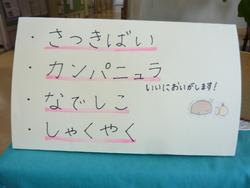 ・さつきばい
・カンパニュラ
いいにおいがします！
・なでしこ
・しゃくやく